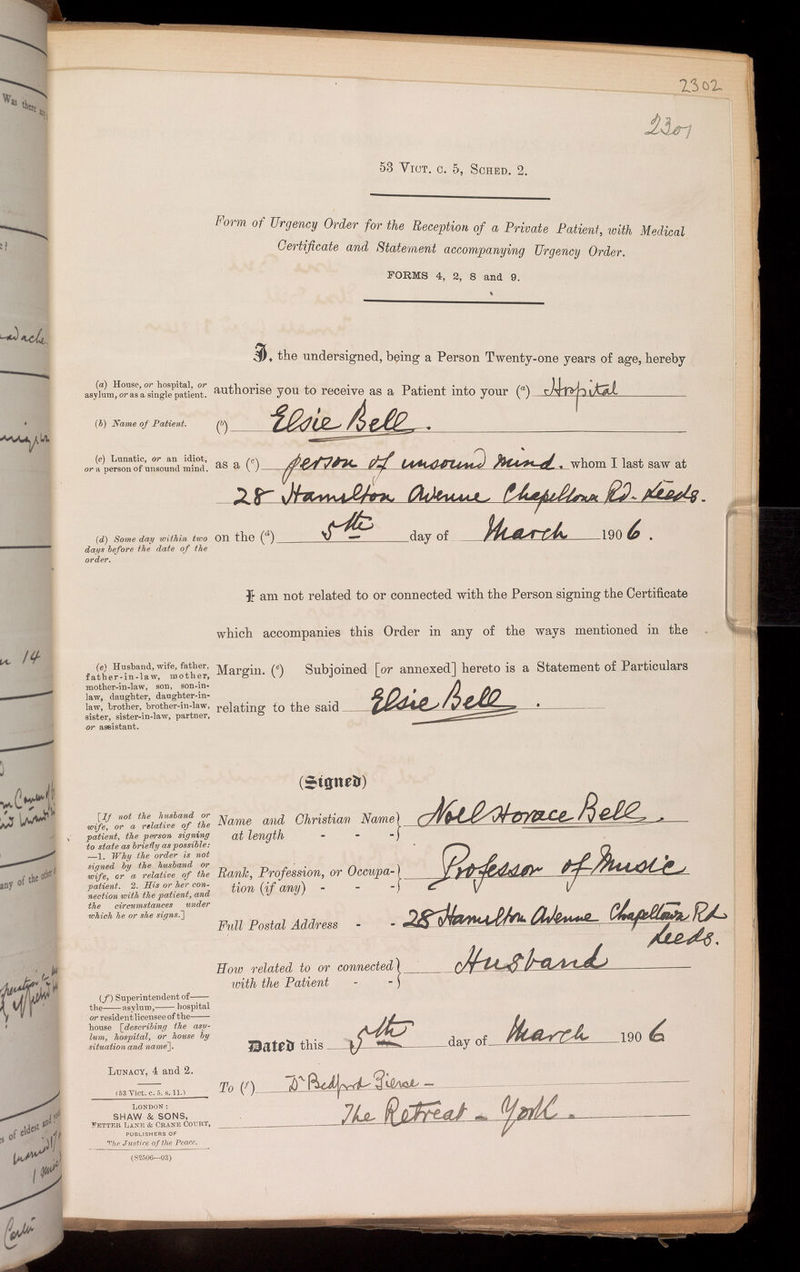 2302
2301
53 Vict. c. 5, Sched. 2.
Form of Urgency Order for the Reception of a Private Patient, with Medical
Certificate and Statement accompanying Urgency Order.
FORMS 4, 2, 8 and 9.
I, the undersigned, being a Person Twenty-one years of age, hereby
(a) House, or hospital, or
asylum, or as a single patient.
authorise you to receive as a Patient into your (a) Hospital
(b) Name of Patient.
(b) Elsie Bell.
(c) Lunatic, or an idiot,
or a person of unsound mind.
as a (c) person of unsound mind, whom I last saw at
28 Hamilton Avenue Chapeltown Rd. Leeds.
(d) Some day within two
days before the date of the
order.
on the (d) 5th day of March 1906.
I am not related to or connected with the Person signing the Certificate
which accompanies this Order in any of the ways mentioned in the
(e) Husband, wife, father,
father-in-law, mother,
mother-in-law, son, son-in-
law, daughter, daughter-in-
law, brother, brother-in-law,
sister, sister-in-law, partner,
or assistant.
Margin. (e) Subjoined [or annexed] hereto is a Statement of Particulars
relating to the said Elsie Bell.
(Signed)
[If not the husband or
wife, or a relative of the
patient, the person signing
to state as briefly as possible:
—1. Why the order is not
signed by the husband or
wife, or a relative of the
patient. 2. His or her con-
nection with the patient, and
the circumstances under
which he or she signs.]
Name and Christian Name
at length - - - Noel Horace Bell.
Rank, Profession, or Occupa-
tion (if any) - - - Professor of Music
Full Postal Address - - 28 Hamilton Avenue Chapeltown Rd
Leeds.
How related to or connected
with the Patient - - Husband
(f) Superintendent of——
the——asylum,——hospital
or resident licensee of the——
house [describing the asy-
lum, hospital, or house by
situation and name].
Dated this 5th day of March 1906
Lunacy, 4 and 2.
(53 Vict. c. 5. s. 11.)
To (f) Dr Bedford Pierce —
The Retreat - York.
London:
SHAW & SONS,
Fetter Lane & Crane Court,
PUBLISHERS OF
The Justice of the Peace.
(S2506—03)
Was there any
14
any of the other
s of eldest and